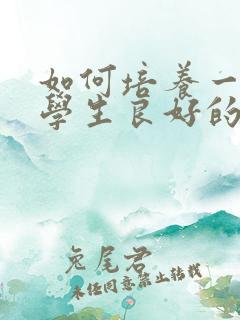 如何培養一
學生良好的
兔尾君
未经同意禁止转载